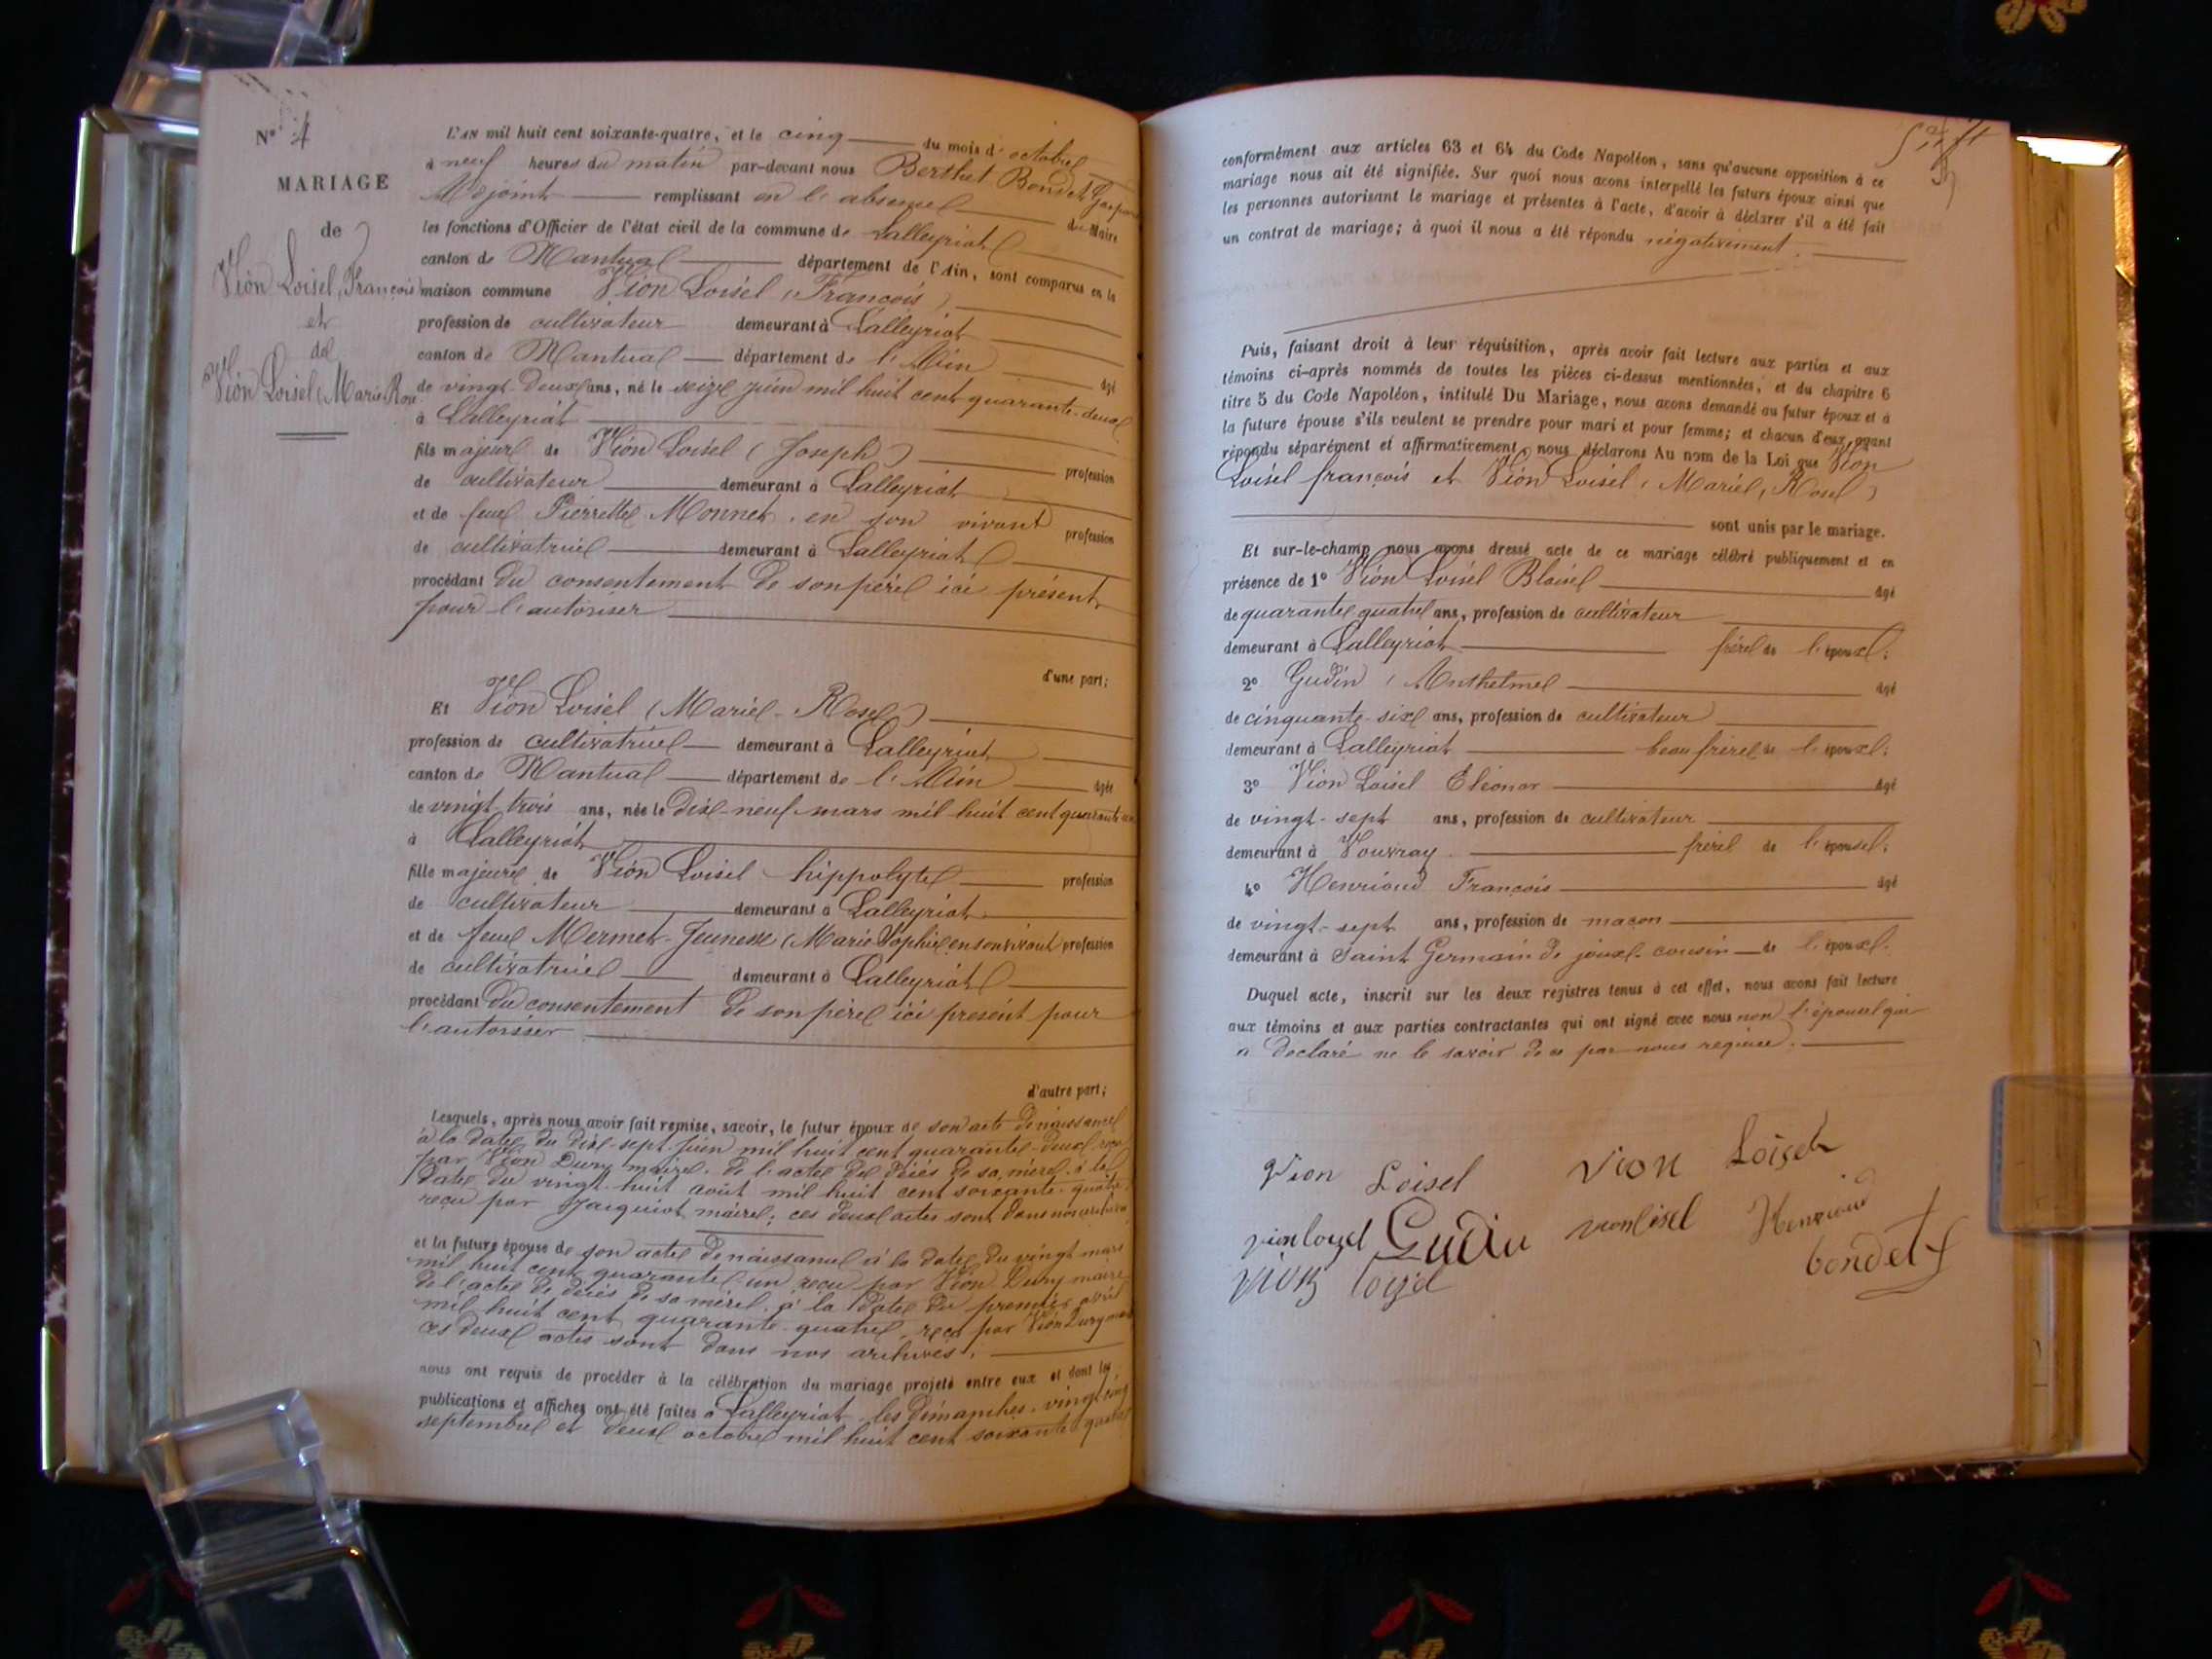 N° 4
MARIAGE
de
Vion Loisel (François)
et
de
Vion Loisel (Marie Rose
L'AN mil huit cent soixante-quatre, et le cinq du mois d' octobre
à neuf heures du matin par-devant nous Berthet Bondet Gaspard
Adjoint remplissant en l'absence du Maire
les fonctions d'Officier de l'état civil de la commune de Lalleyriat
canton de Nantua département de l'Ain, sont comparus en la
maison commune Vion Loisel (François)
profession de cultivateur demeurant à Lalleyriat
canton de Nantua département de l'Ain âgé
de vingt deux ans, né le seize juin mil huit cent quarante-deux
à Lalleyriat
fils majeur de Vion Loisel (Joseph) profession
de cultivateur demeurant à Lalleyriat
et de feue Pierrette Monnet, en son vivant profession
de cultivatrice demeurant à Lalleyriat
procédant du consentement de son père ici présent
pour l'autoriser
d'une part;
Et Vion Loisel (Marie-Rose)
profession de cultivatrice demeurant à Lalleyriat
canton de Nantua département de l'Ain âgée
de vingt trois ans, née le dix-neuf mars mil huit cent quarante un
à Lalleyriat
fille majeure de Vion Loisel hippolyte profession
de cultivateur demeurant à Lalleyriat
et de feue Mermet-Jeunesse (Marie Sophie en son vivant profession
de cultivatrice demeurant à Lalleyriat
procédant du consentement de son père ici présent pour
l'autoriser
d'autre part;
Lesquels, après nous avoir fait remise, savoir, le futur époux de son acte de naissance
à la date du dix-sept juin mil huit cent quarante-deux reçu
par Vion Dury maire. de l'acte de décès de sa mère. à la
date du vingt-huit août mil huit cent soixante-quatre
reçu par Jacquiot maire; ces deux actes sont dans nos archives
et la future épouse de son acte de naissance à la date du vingt mars
mil huit cent quarante un reçu par Vion Dury maire
de l'acte de décès de sa mère. à la date du premier avril
mil huit cent quarante-quatre, reçu par Vion Dury maire
ces deux actes sont dans nos archives.
nous ont requis de procéder à la célébration du mariage projeté entre eux et dont les
publications et affiches ont été faites à Lalleyriat les dimanches vingt cinq
septembre et deux octobre mil huit cent soixante quatre
conformément aux articles 63 et 64 du Code Napoléon, sans qu'aucune opposition à ce
mariage nous ait été signifiée. Sur quoi nous avons interpellé les futurs époux ainsi que
les personnes autorisant le mariage et présentes à l'acte, d'avoir à déclarer s'il a été fait
un contrat de mariage; à quoi il nous a été répondu négativement.
Puis, faisant droit à leur réquisition, après avoir fait lecture aux parties et aux
témoins ci-après nommés de toutes les pièces ci-dessus mentionnées, et du chapitre 6
titre 5 du Code Napoléon, intitulé Du Mariage, nous avons demandé au futur époux et à
la future épouse s'ils veulent se prendre pour mari et pour femme; et chacun d'eux ayant
répondu séparément et affirmativement, nous déclarons Au nom de la Loi que Vion
Loisel françois et Vion Loisel (Marie, Rose)
sont unis par le mariage.
Et sur-le-champ nous avons dressé acte de ce mariage célébré publiquement et en
présence de 1° Vion Loisel Blaise âgé
de quarante quatre ans, profession de cultivateur
demeurant à Lalleyriat frère de l'époux;
2° Gudin (Anthelme âgé
de cinquante-six ans, profession de cultivateur
demeurant à Lalleyriat beau frère de l'époux;
3° Vion Loisel Eléonor âgé
de vingt-sept ans, profession de cultivateur
demeurant à Vouvray frère de l'épouse;
4° Henrioud François âgé
de vingt-sept ans, profession de maçon
demeurant à Saint Germain de joux cousin de l'époux.
Duquel acte, inscrit sur les deux registres tenus à cet effet, nous avons fait lecture
aux témoins et aux parties contractantes qui ont signé avec nous non l'épouse qui
a déclaré ne le savoir de ce par nous requise.
Vion Loisel vion Loisel
vion loysel Gudin vionloisel Henrioud
vion loysel bondet